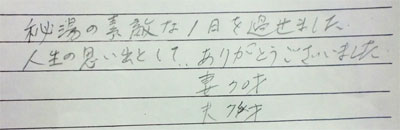 秘湯の素敵な1日を過せました
人生の思い出として、ありがとうございました
妻 70才
夫 才